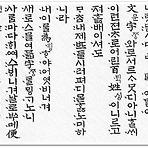 文문字ᄍᆞᆼ와로서르ᄉᆞᄆᆞᆺ디아니ᄒᆞᆯᄊᆡ
이런젼ᄎᆞ로어린百ᄇᆡᆨ姓셔ᇰ이니르고
져호ᇙ배이셔도
ᄆᆞᄎᆞᆷ내제ᄠᅳ들시러펴디몯ᄒᆞᇙ노미하
니라
내이ᄅᆞᆯ爲윙ᄒᆞ야어엿비너겨
새로스믈여듧字ᄍᆞᆼᄅᆞᆯᄆᆡᇰᄀᆞ노니
사ᄅᆞᆷ마다ᄒᆡᅇᅧ수ᄫᅵ니겨날로ᄡᅮ메便